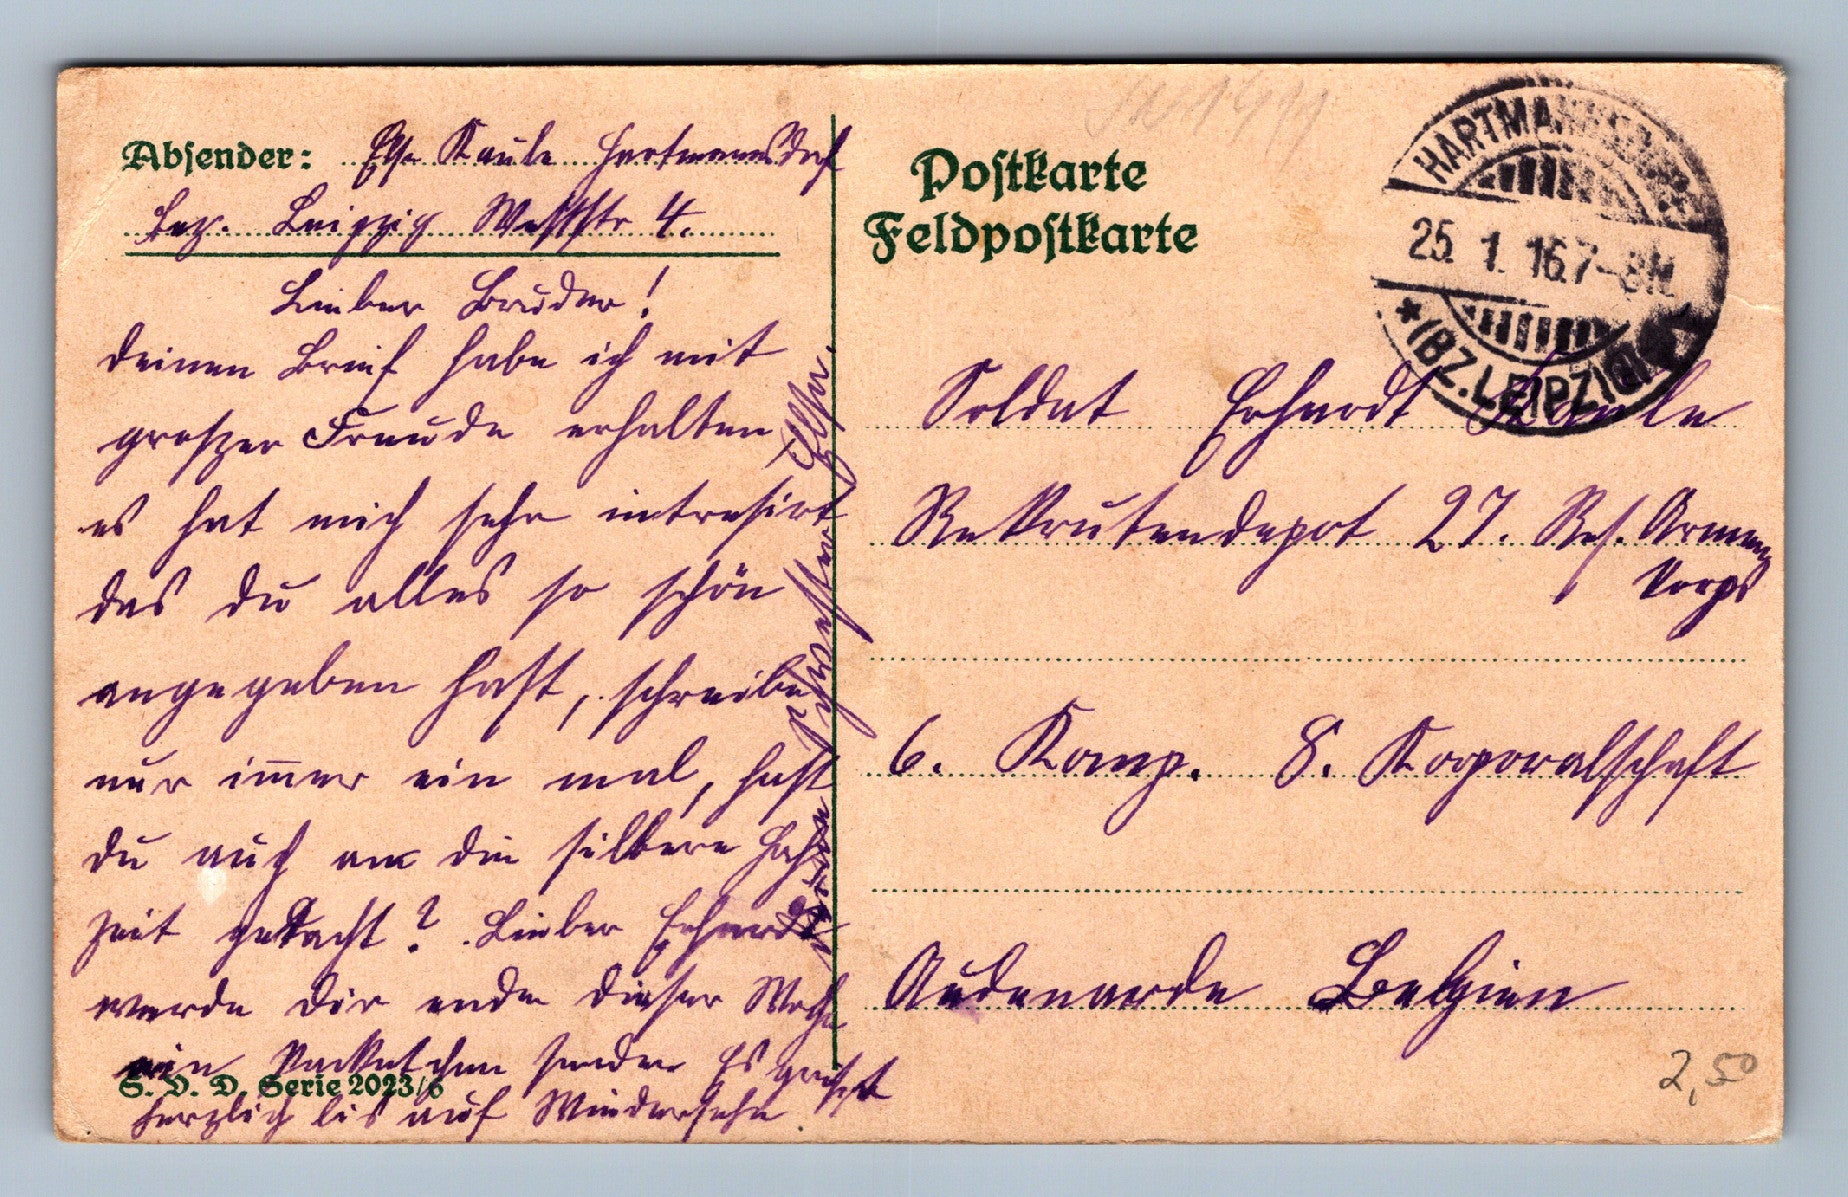 Absender: Else Kaule Hartmannsdorf
Bez. Leipzig Weststr 4.
Lieber Bruder!
deinen Brief habe ich mit
groszer Freude erhalten
es hat mich sehr intresirt
das du alles so schön
angegeben hast, schreibe
nur immer ein mal, hast
du auch an die silbere Hoch
zeit gedacht? Lieber Erhardt
werde dir ende dieser Woche
ein Packetchen senden Es grüszt
herzlich bis auf Wiedersehn
deine Schwester Elsa.
S. V. D. Serie 2023/6
Postkarte
Feldpostkarte
HARTMANNSDORF
25. 1. 16. 7-8N
* (BZ. LEIPZIG)
Soldat Erhardt Kaule
Rekrutendepot 27. Res. Armee
Korps
6. Komp. 8. Korporalschaft
Audenarde Belgien
2,50